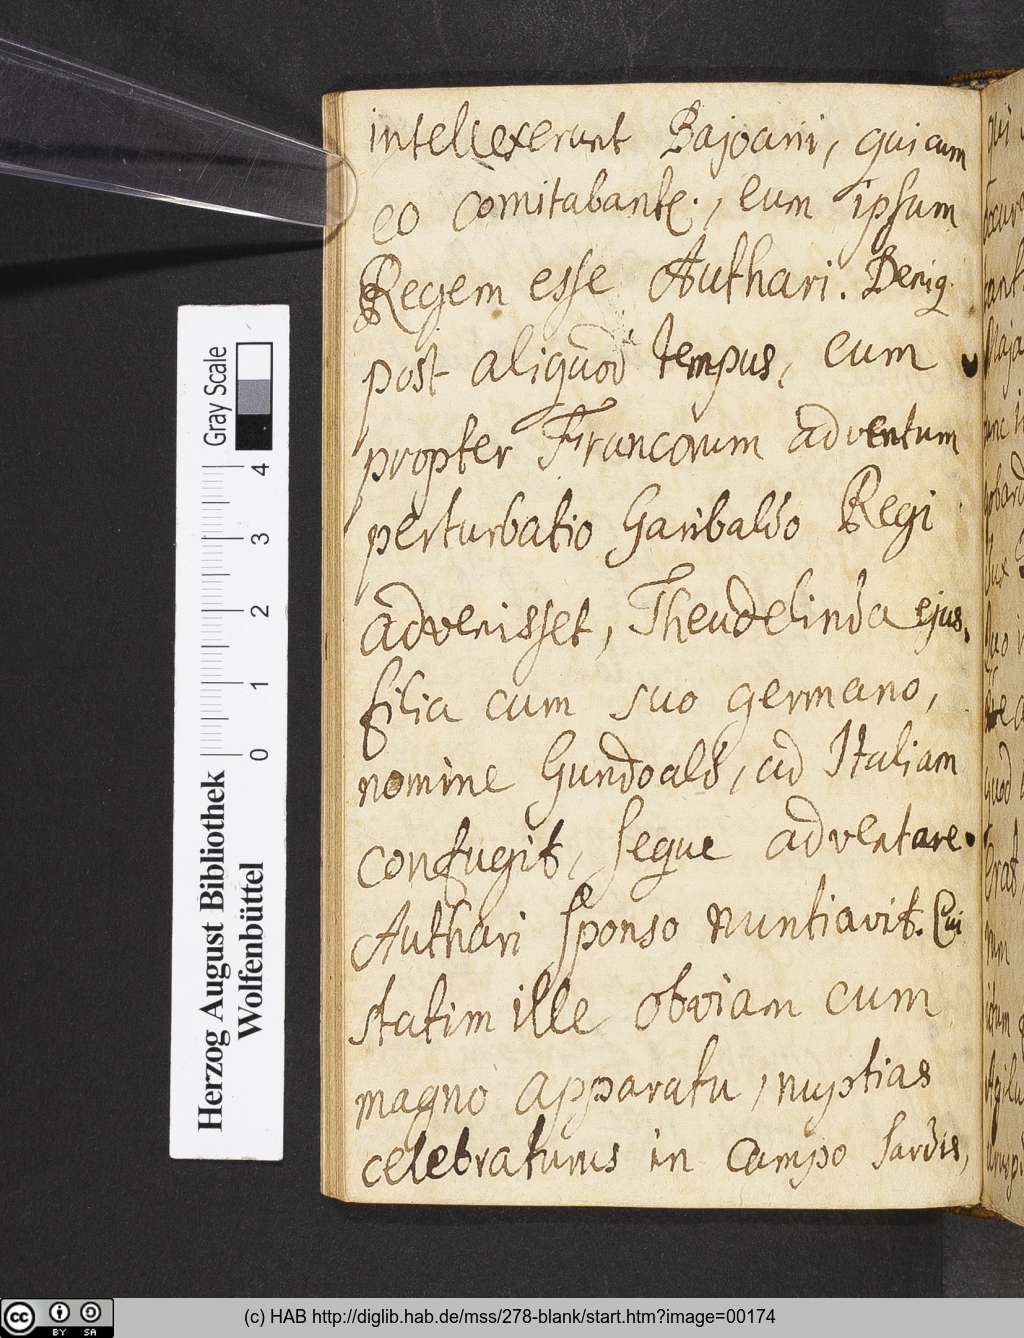 intellexerunt Bajoarii, qui cum
eo comitabante., eum ipsum
Regem esse Authari. Deniq.
post aliquod tempus, cum
propter Francorum adventum
perturbatio Garibaldo Regi
advenisset, Theudelinda ejus.
filia cum suo germano,
nomine Gundoald, ad Italiam
confugit, seque adventare
Authari sponso nuntiavit. Cui
statim ille obviam cum
magno apparatu, nuptias
celebraturus in campo Sardis,
Gray Scale
4
3
2
1
0
Herzog August Bibliothek
Wolfenbüttel
cc BY SA
(c) HAB http://diglib.hab.de/mss/278-blank/start.htm?image=00174